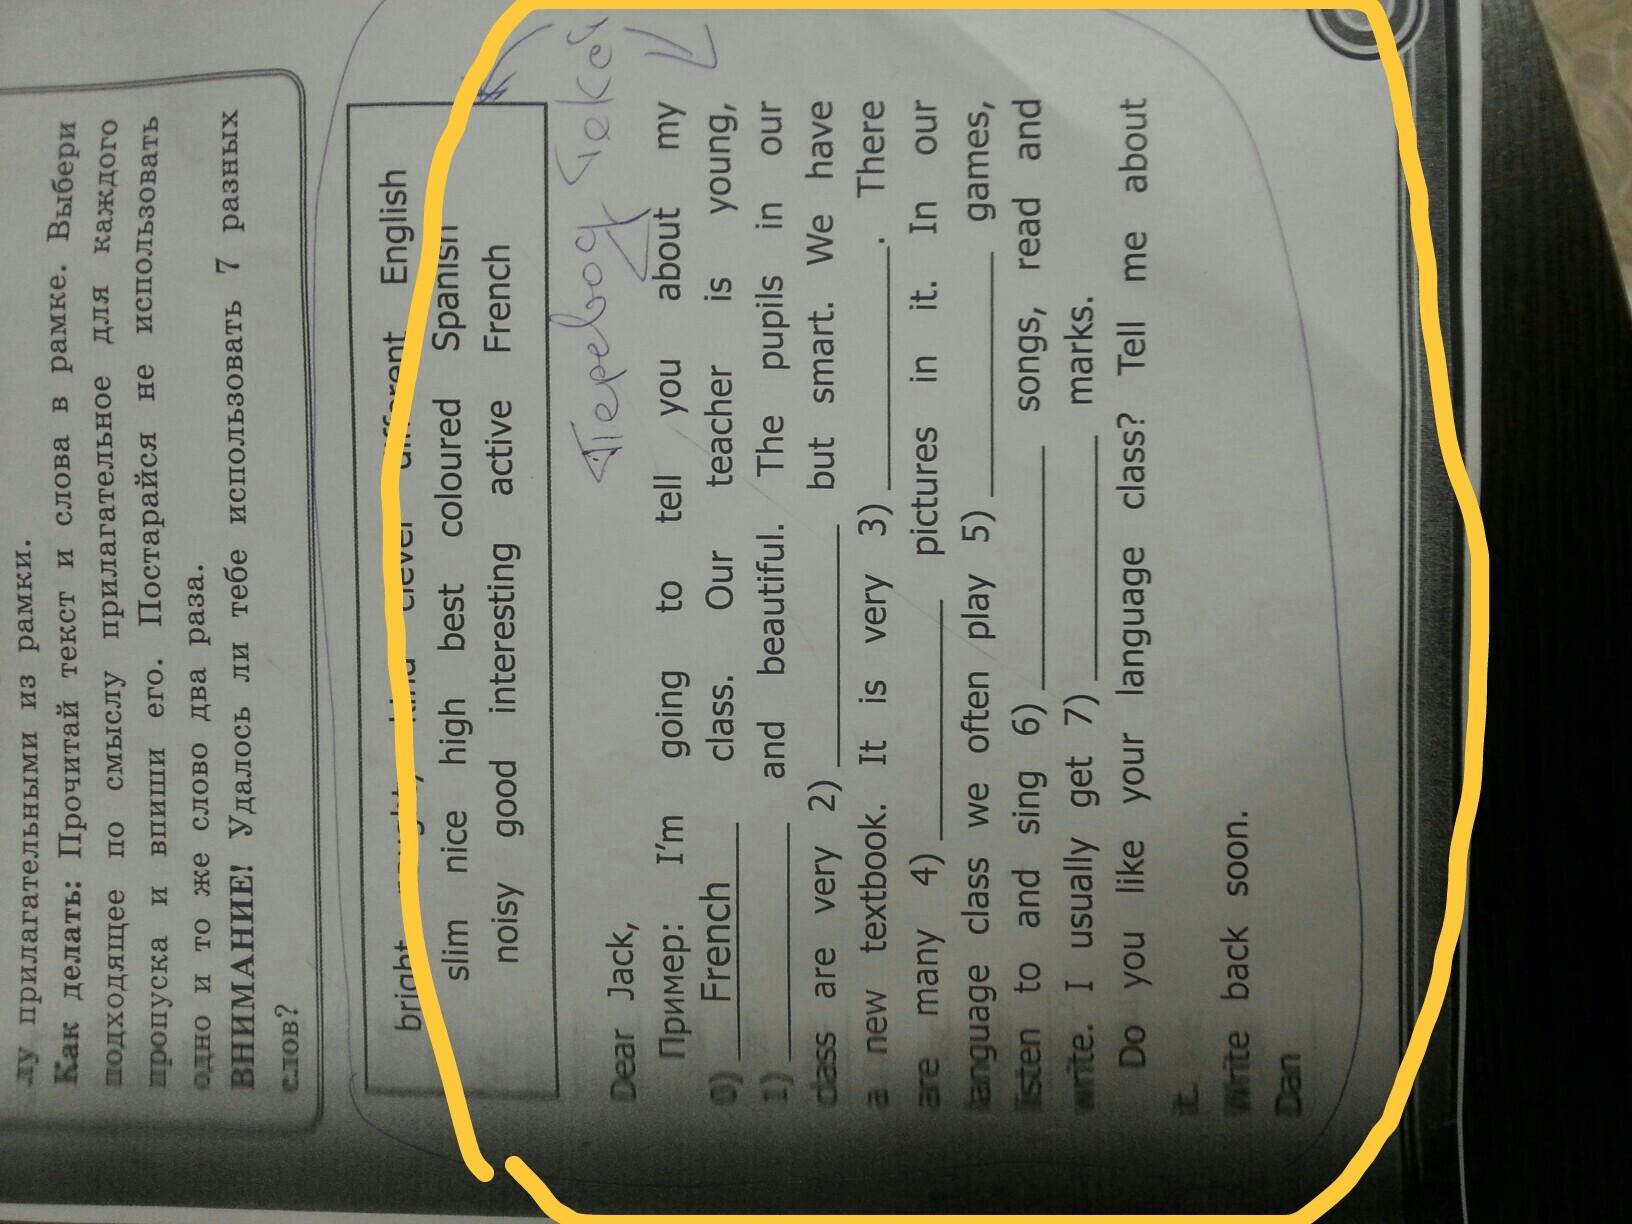 лу прилагательными из рамки.
Как делать: Прочитай текст и слова в рамке. Выбери
подходящее по смыслу прилагательное для каждого
пропуска и впиши его. Постарайся не использовать
одно и то же слово два раза.
ВНИМАНИЕ! Удалось ли тебе использовать 7 разных
слов?
bright naughty kind clever different English
slim nice high best coloured Spanish
noisy good interesting active French
Перевод
Dear Jack,
Пример: I'm going to tell you about my
0) French class. Our teacher is young,
1) and beautiful. The pupils in our
class are very 2) but smart. We have
a new textbook. It is very 3) . There
are many 4) pictures in it. In our
language class we often play 5) games,
listen to and sing 6) songs, read and
write. I usually get 7) marks.
Do you like your language class? Tell me about
it.
Write back soon.
Dan